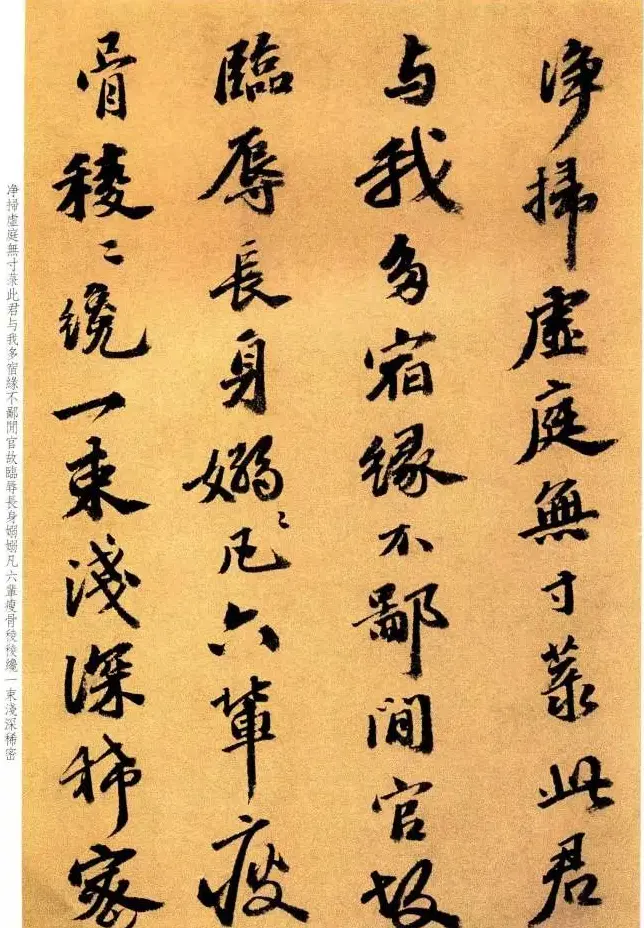 净掃虛庭無寸菉此君
与我多宿緣不鄙閒官故
臨辱長身嫋〻凡六輩瘦
骨稜〻纔一束淺深稀密
净掃虛庭無寸菉此君与我多宿緣不鄙閒官故臨辱長身嫋嫋凡六輩瘦骨稜稜纔一束淺深稀密